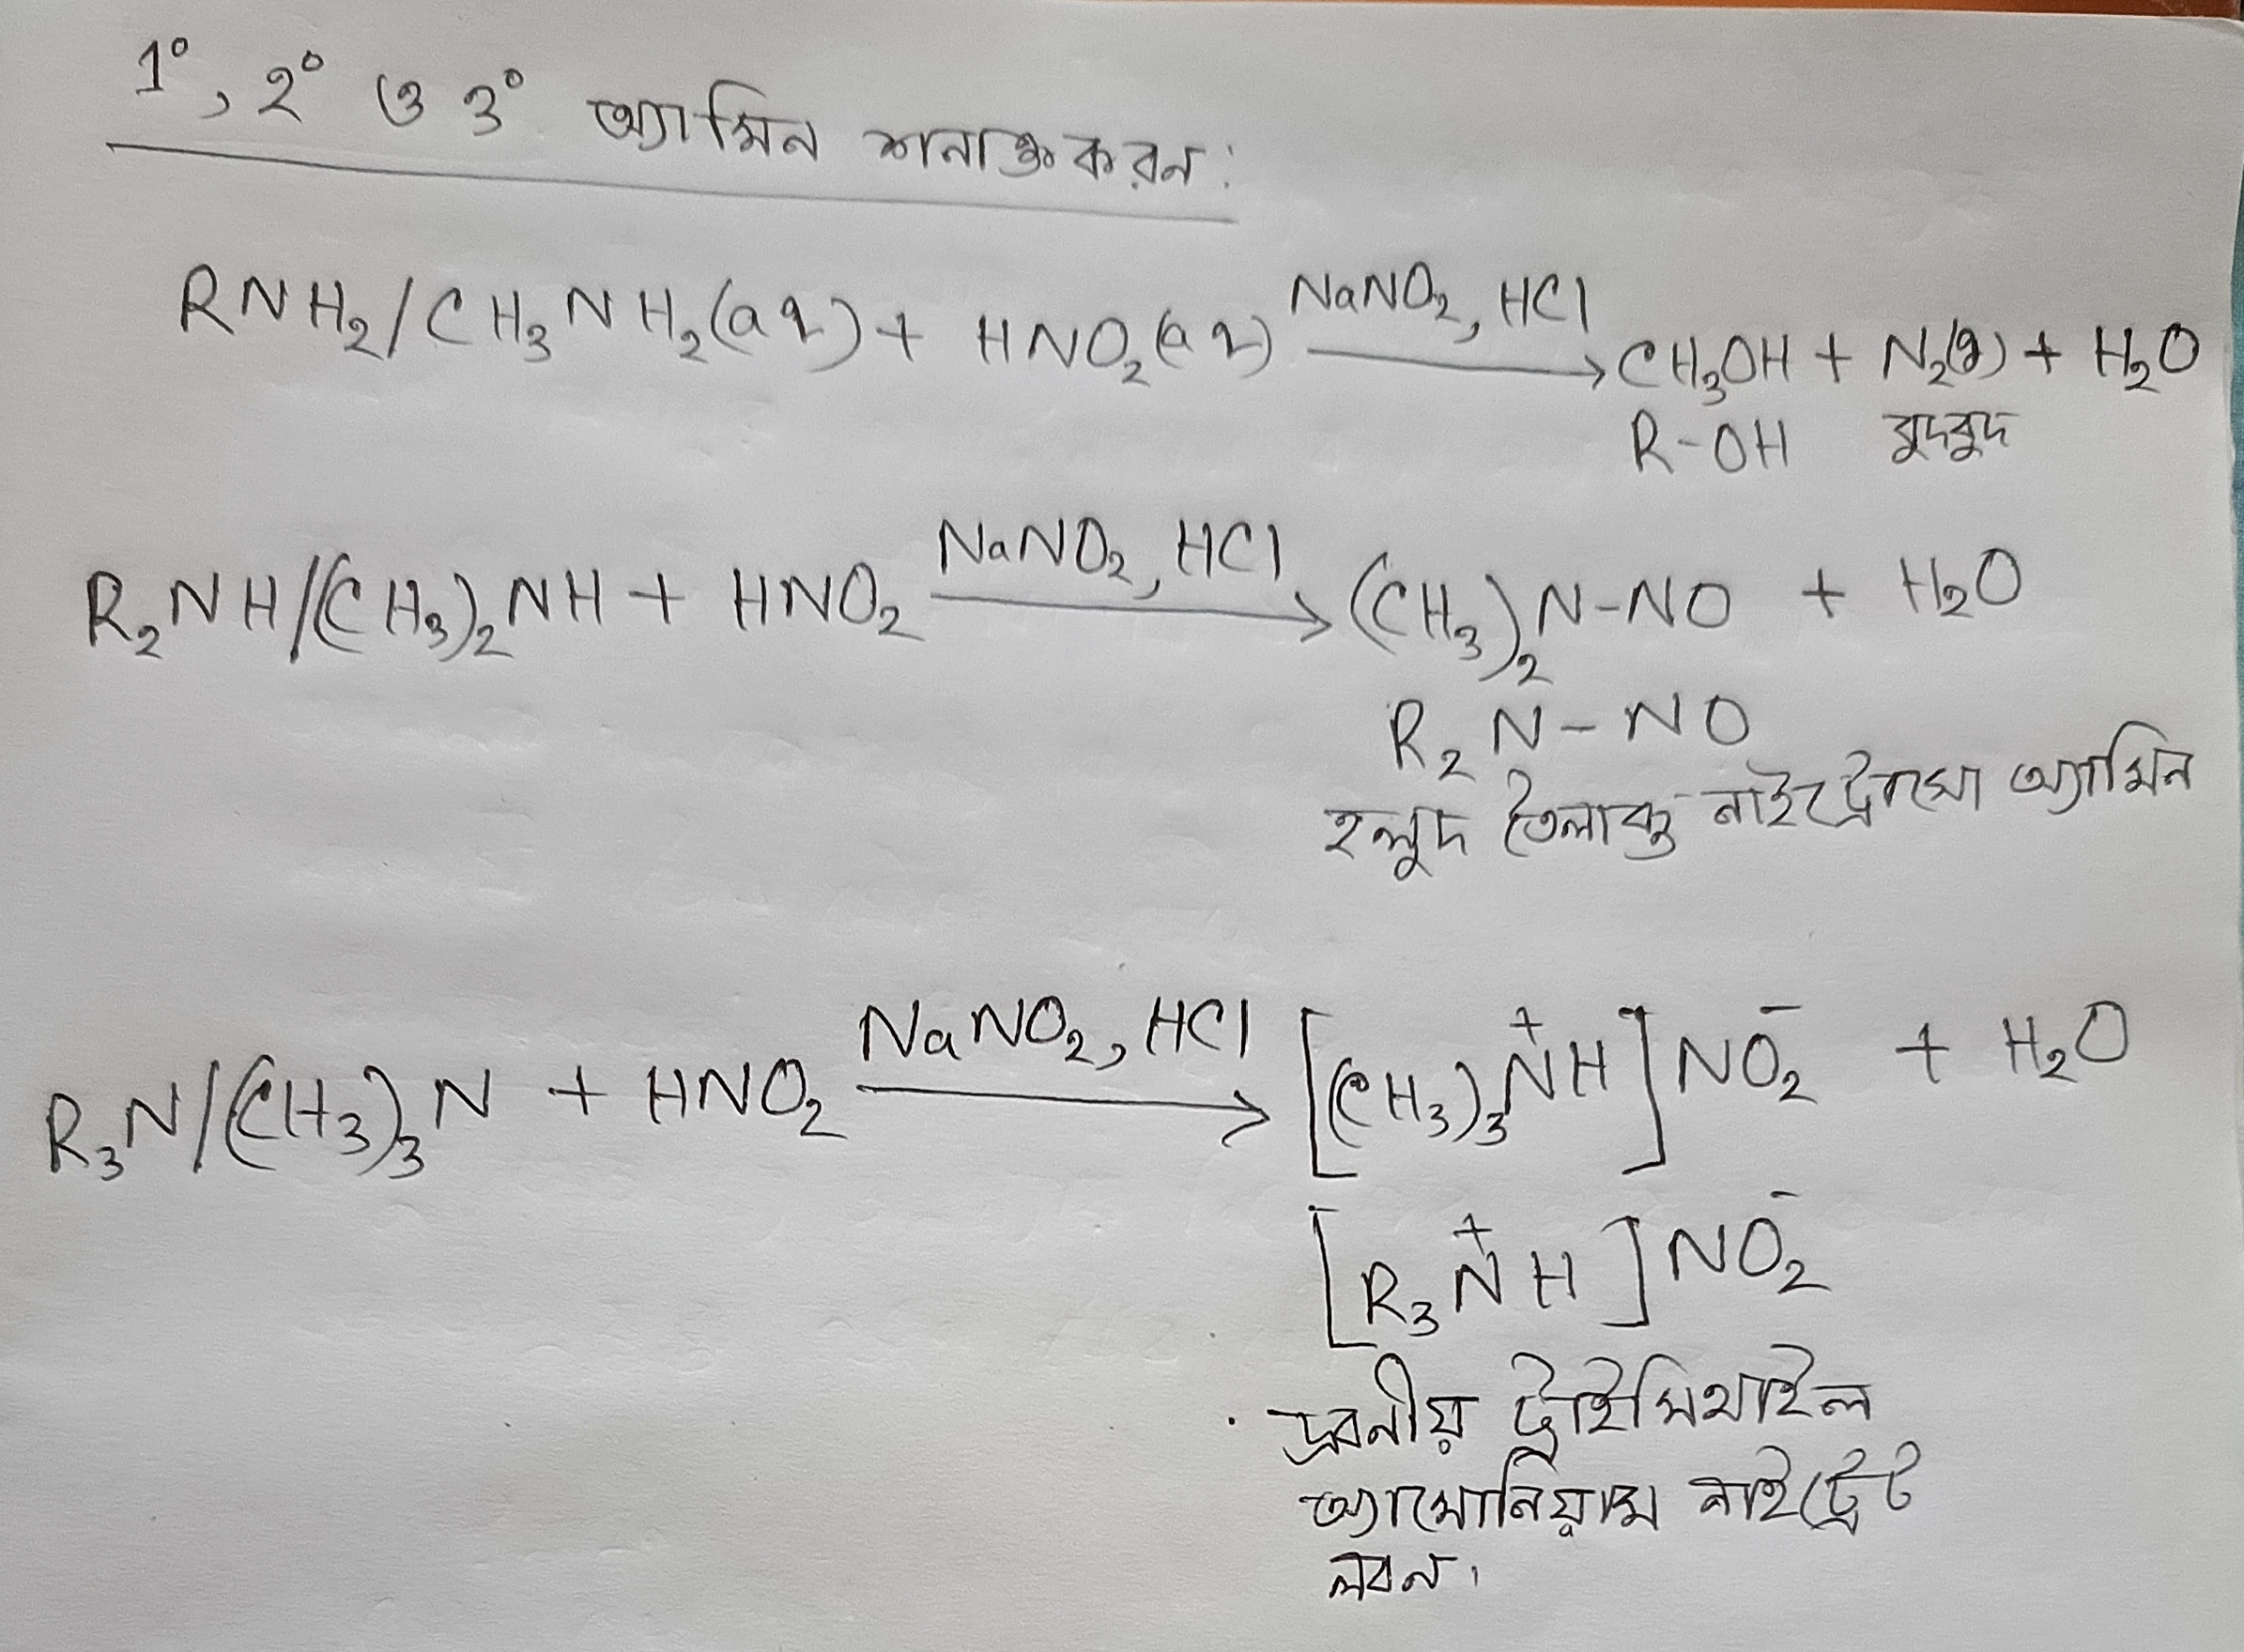 1°, 2° ও 3° অ্যামিন শনাক্তকরন:
RNH₂/CH₃NH₂(aq) + HNO₂(aq) NaNO₂, HCl → CH₃OH + N₂(g) + H₂O
R-OH বুদবুদ
R₂NH/(CH₃)₂NH + HNO₂ NaNO₂, HCl → (CH₃)₂N-NO + H₂O
R₂N-NO
হলুদ তৈলাক্ত নাইট্রোসো অ্যামিন
R₃N/(CH₃)₃N + HNO₂ NaNO₂, HCl → [(CH₃)₃N⁺H]NO₂⁻ + H₂O
[R₃N⁺H]NO₂⁻
দ্রবনীয় ট্রাইমিথাইল
অ্যামোনিয়াম নাইট্রেট
লবন।